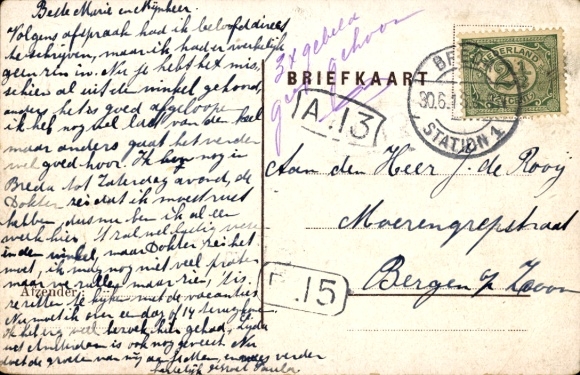 Beste Marie en Mijnheer.
Volgens afspraak had ik beloofd direct
te schrijven, maar ik had er werkelijk
geen zin in. Nu je hebt het mis-
schien al uit den winkel gehoord,
anders, het is goed afgeloopen
ik heb nog wel last van den keel
maar anders gaat het verder
wel goed hoor. Ik ben nog in
Breda tot Zaterdag avond, de
Dokter zei dat ik moest rust
hebben, dus nu ben ik al een
week hier. 't zal wel
in den winkel, maar Dokter zei het
moet, ik mag nog niet veel praten
maar we zullen maar zien, 't is
te kijken met de vacanties
Nu moet ik over een dag of 14 terug
Ik heb erg veel bezoek hier gehad,
uit Amsterdam is ook nog geweest. Nu
doet de groeten van mij aan en verder
hartelijk Paula
3x gebeld
geen gehoor
BRIEFKAART
Afzender
A.13
.15
BREDA
30.6.
STATION 1
NEDERLAND
2½
CENT
Aan den Heer J. de Rooij
Moerengrepstraat
Bergen op Zoom